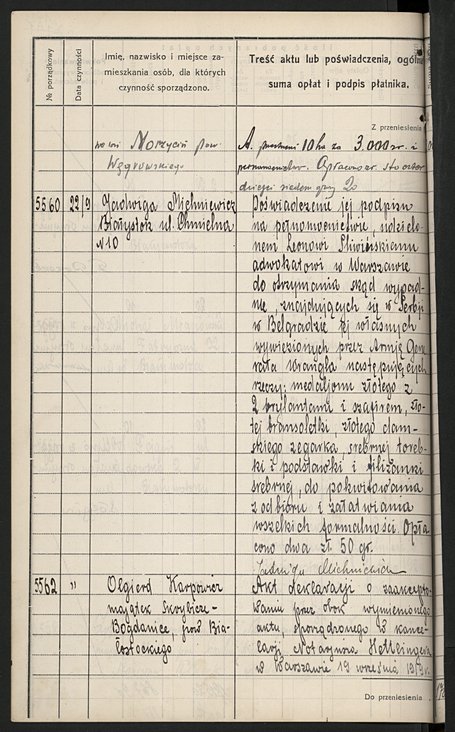 № porządkowy
Data czynności
Imię, nazwisko i miejsce za-
mieszkania osób, dla których
czynność sporządzono.
Treść aktu lub poświadczenia, ogóln
suma opłat i podpis płatnika.
Z przeniesienia
we wsi Norzycin pow.
Węgrowskiego
A. 10 ha za 3.000 zł. i
Opłacono zł. sto
dzieści siedem gr. 20
5560 22/9 Jadwiga Michniewicz
Białystok ul. Chmielna
N 10
Poświadczenie jej podpisu
na pełnomocnictwie, udzielo-
nem Leonowi Śliwińskiemu
adwokatowi w Warszawie
do otrzymania skąd wypad-
nie, znajdujących się w Serbji
w Belgradzie jej własnych
wywiezionych przez Armję Gene
rała Wrangla następujących
rzeczy: medaljonu złotego z
2 brylantami i szafirem, zło-
tej bransoletki, złotego dam-
skiego zegarka, srebrnej toreb-
ki i podstawki i filiżanki
srebrnej, do pokwitowania
z odbioru i załatwiania
wszelkich formalności. Opła
cono dwa zł. 50 gr.
Jadwiga Michniewicz
5562 " Olgierd Karpowicz
majątek Skrybicze-
Bogdaniec, pow. Bia-
łostockiego
Akt deklaracji o zaakcepto-
waniu przez obok wymienionego
aktu, sporządzonego w kance-
larji Notarjusza Hettlingera
w Warszawie 19 września 19 r.
Do przeniesienia